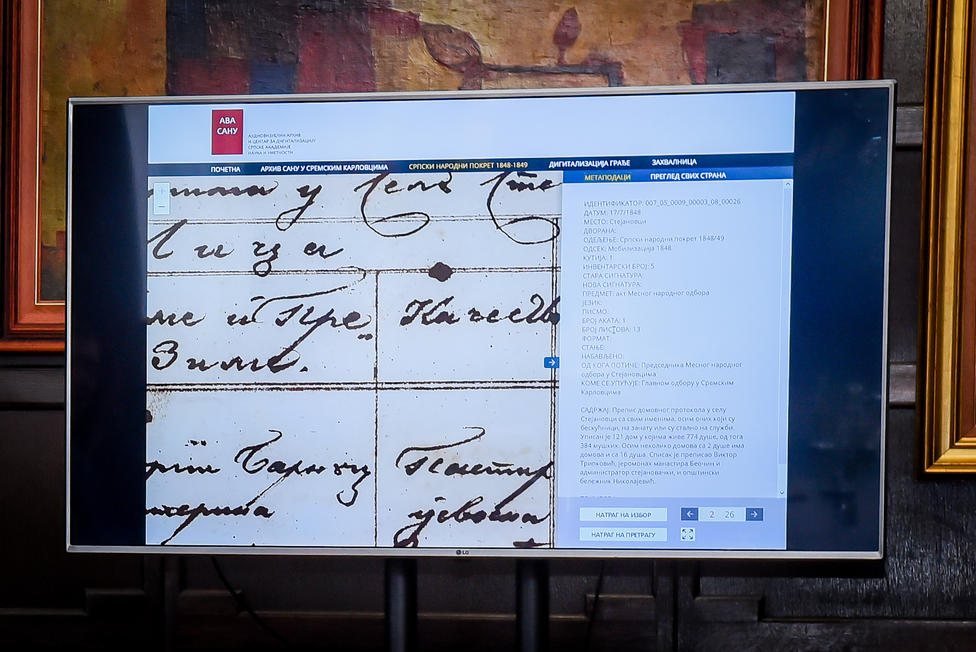 АВА
САНУ
АУДИОВИЗУЕЛНИ АРХИВ
И ЦЕНТАР ЗА ДИГИТАЛИЗАЦИЈУ
СРПСКЕ АКАДЕМИЈЕ
НАУКА И УМЕТНОСТИ
ПОЧЕТНА АРХИВ САНУ У СРЕМСКИМ КАРЛОВЦИМА СРПСКИ НАРОДНИ ПОКРЕТ 1848-1849 ДИГИТАЛИЗАЦИЈА ГРАЂЕ ЗАХВАЛНИЦА
МЕТАПОДАЦИ ПРЕГЛЕД СВИХ СТРАНА
у Село
Лица
и Пре
Зиме.
ИДЕНТИФИКАТОР: 007_05_0009_00003_08_00026
ДАТУМ: 17/7/1848
МЕСТО: Стејановци
ДВОРАНА:
ОДЕЉЕЊЕ: Српски народни покрет 1848/49
ОДСЕК: Мобилизација 1848
КУТИЈА: 1
ИНВЕНТАРСКИ БРОЈ: 5
СТАРА СИГНАТУРА:
НОВА СИГНАТУРА:
ПРЕДМЕТ: акт Месног народног одбора
ЈЕЗИК:
ПИСМО:
БРОЈ АКАТА: 1
БРОЈ ЛИСТОВА: 13
ФОРМАТ:
СТАЊЕ:
НАБАВЉЕНО:
ОД КОГА ПОТИЧЕ: Председника Месног народног
одбора у Стејановцима
КОМЕ СЕ УПУЋУЈЕ: Главном одбору у Сремским
Карловцима
САДРЖАЈ: Препис домовног протокола у селу
Стејановци са свим именима, осим оних који су
бескућници, на занату или су стално на служби.
Уписан је 121 дом у којима живе 774 душе, од тога
384 мушких. Осим неколико домова са 2 душе има
домова и са 16 душа. Списак је преписао Виктор
Трипковић, јеромонах манастира Беочин и
администратор стејановачки, и општински
бележник Николајевић.
НАТРАГ НА ИЗБОР 2 26
НАТРАГ НА ПРЕТРАГУ
LG